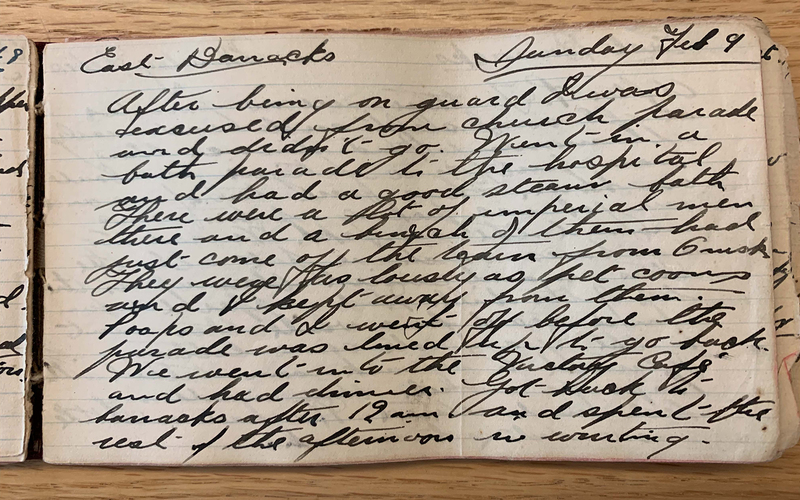 East Barracks Sunday Feb 9
After being on guard I was
excused from church parade
and didn't go. Went in a
bath parade to the hospital
and had a good steam bath
There were a lot of imperial men
there and a bunch of them had
just come off the train from Omsk
They were as lousy as pet coons
and I kept away from them.
and I went off before the
parade was lined up to go back.
We went into the Victory Café
and had dinner. Got back to
barracks after 12 am and spent the
rest of the afternoon in writing.